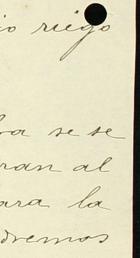 io riego
va se se
ran al
ara la
dremos